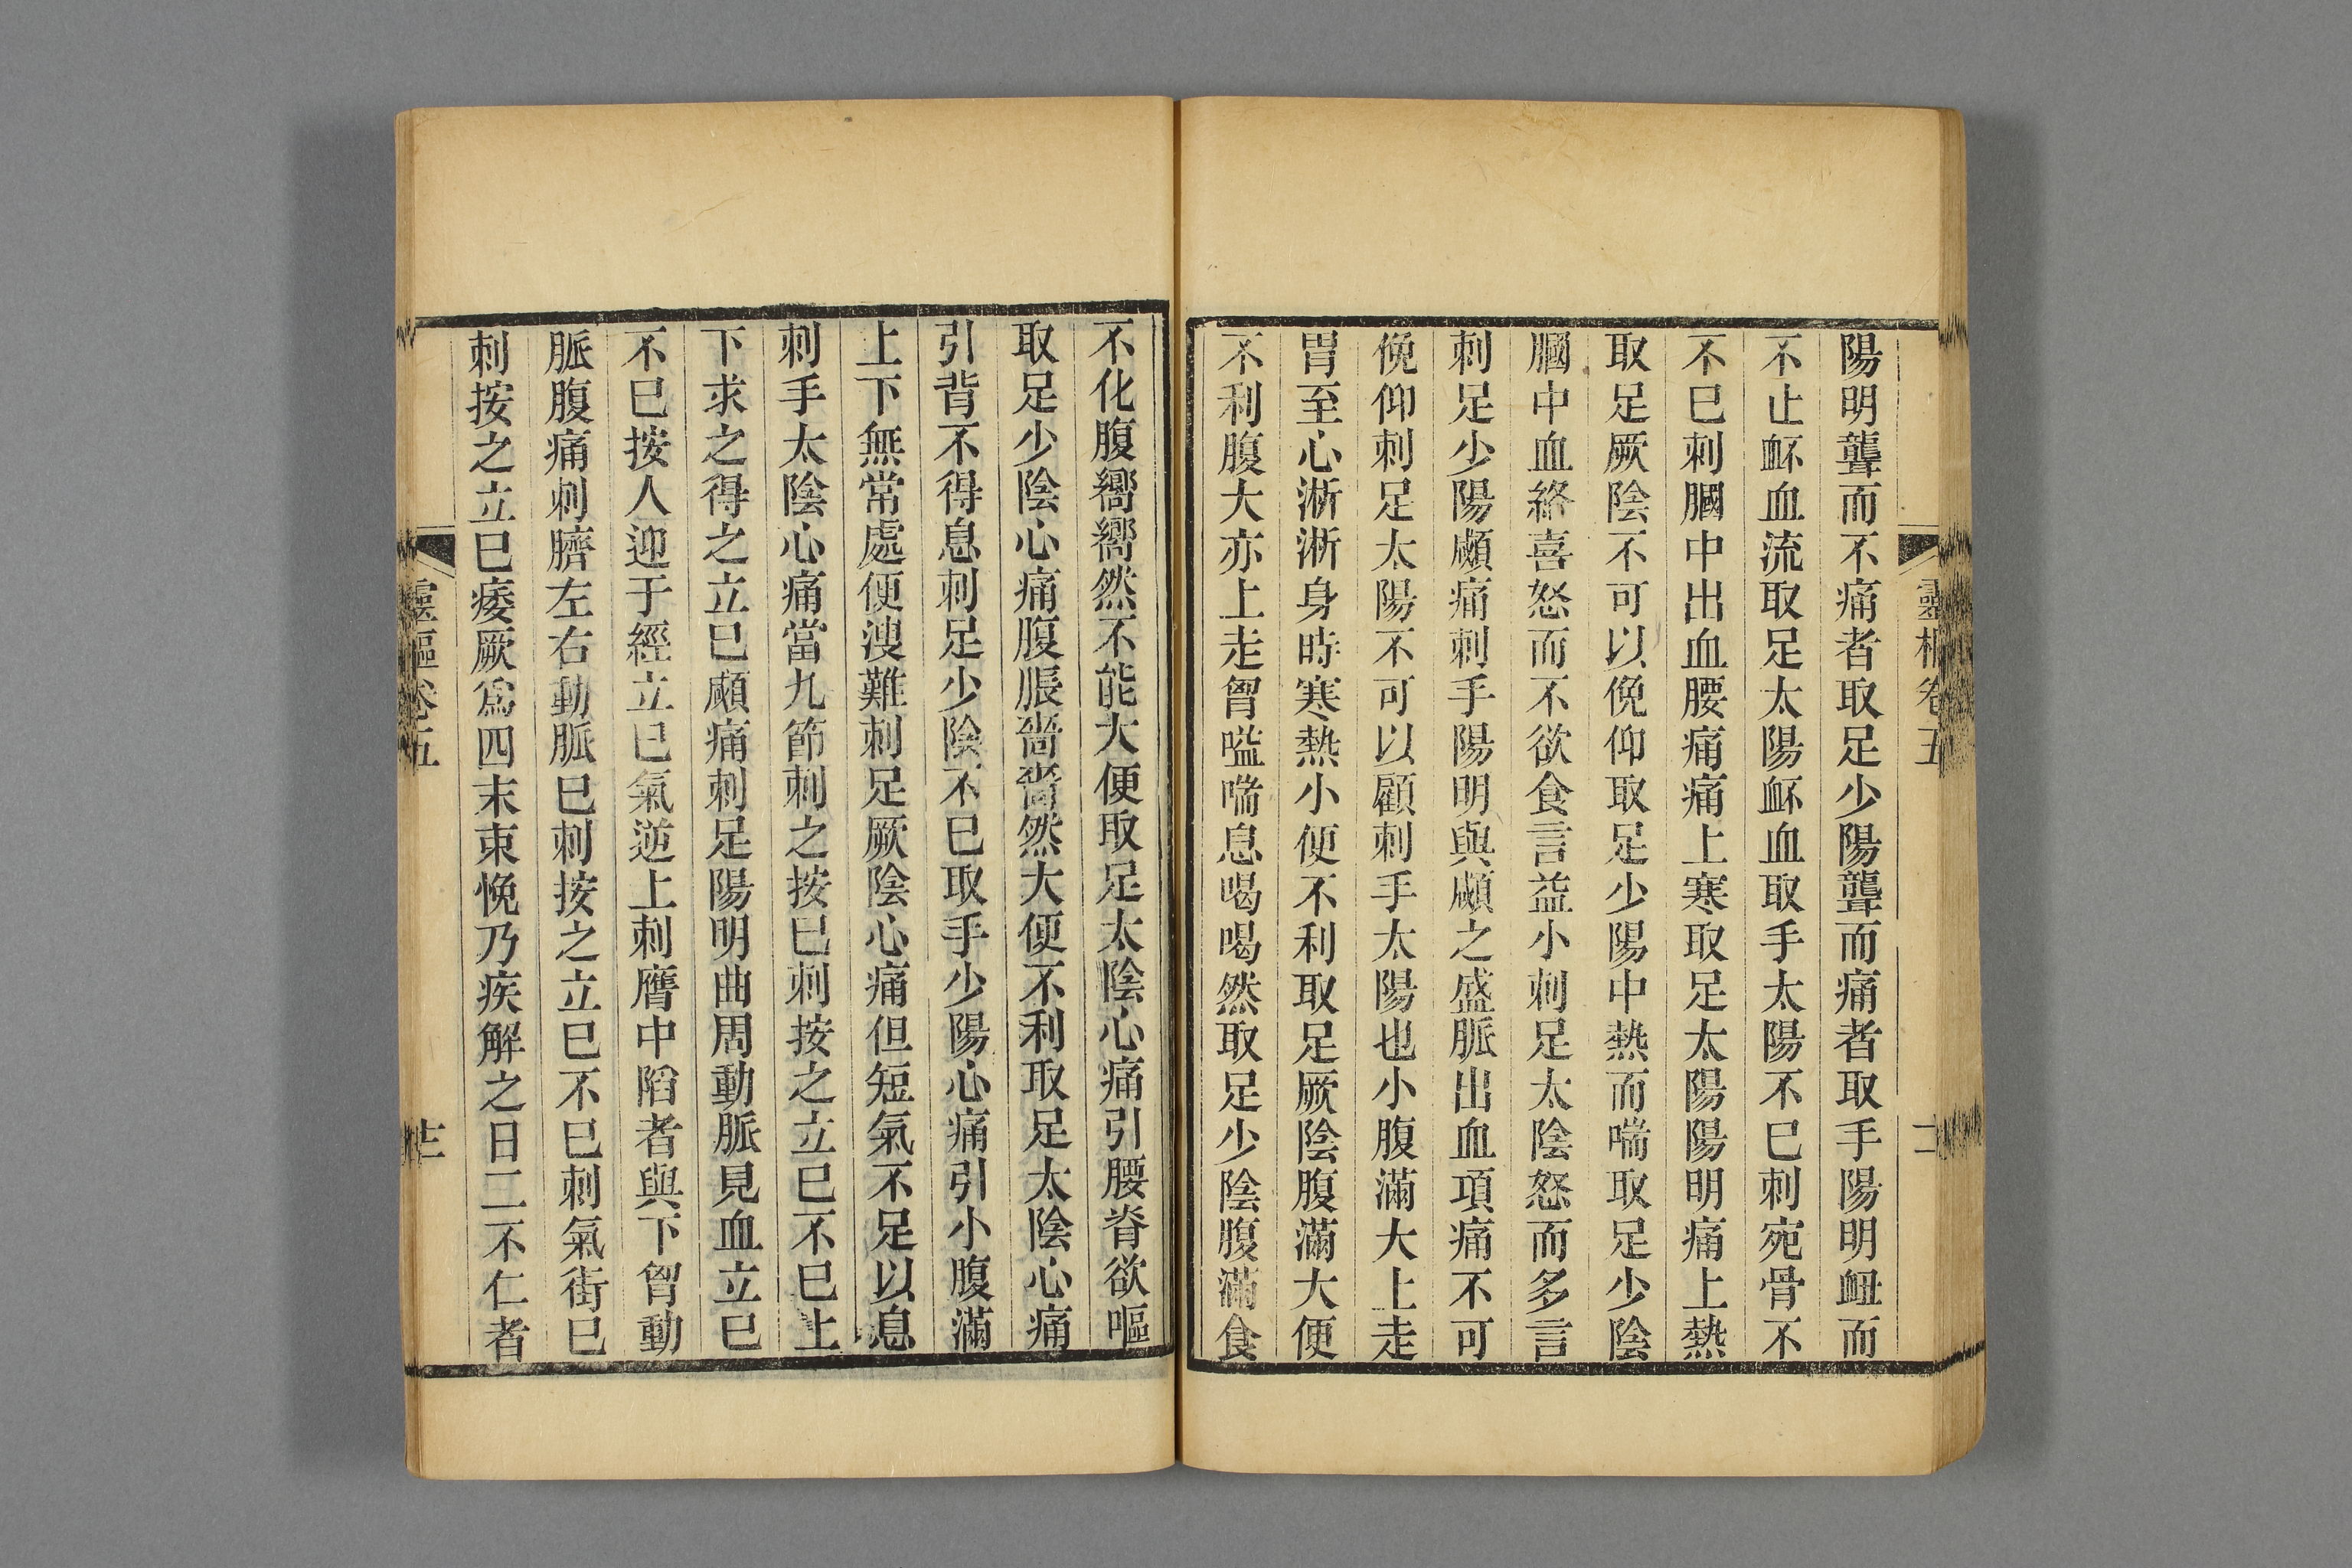 靈樞卷五
陽明聾而不痛者取足少陽聾而痛者取手陽明衄而
不止衃血流取足太陽衃血取手太陽不巳刺宛骨下不
不巳刺膕中出血腰痛痛上寒取足太陽陽明痛上熱
取足厥陰不可以俛仰取足少陽中熱而喘取足少陰
膕中血絡喜怒而不欲食言益小刺足太陰怒而多言
刺足少陽顑痛刺手陽明與顑之盛脈出血項痛不可
俛仰刺足太陽不可以顧刺手太陽也小腹滿大上走
胃至心淅淅身時寒熱小便不利取足厥陰腹滿大便
不利腹大亦上走胷嗌喘息喝喝然取足少陰腹滿食
不化腹嚮嚮然不能大便取足太陰心痛引腰脊欲嘔
取足少陰心痛腹脹嗇嗇然大便不利取足太陰心痛
引背不得息刺足少陰不巳取手少陽心痛引小腹滿
上下無常處便溲難刺足厥陰心痛但短氣不足以息
刺手太陰心痛當九節刺之按巳刺按之立巳不巳上
下求之得之立巳顑痛刺足陽明曲周動脈見血立巳
不巳按人迎于經立巳氣逆上刺膺中陷者與下胷動
脈腹痛刺臍左右動脈巳刺按之立巳不巳刺氣街巳
刺按之立巳痿厥為四末束悗乃疾解之日二不仁者
靈樞卷五